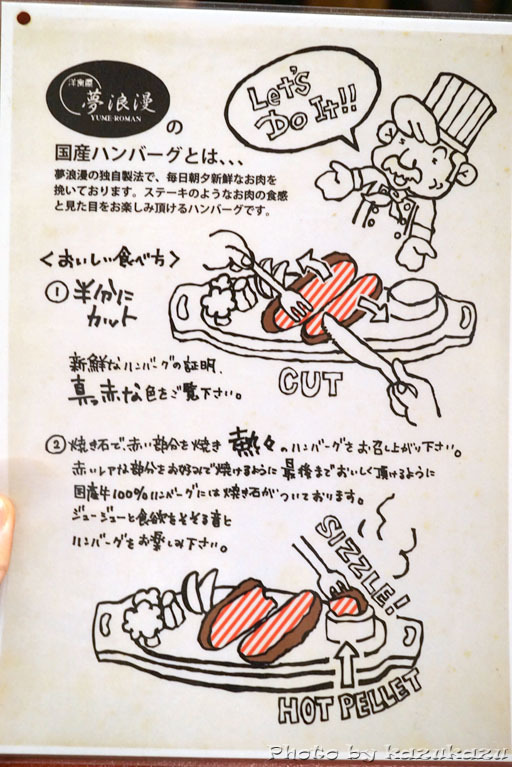 洋食屋
夢浪漫
YUME-ROMAN
の
国産ハンバーグとは、、、
夢浪漫の独自製法で、毎日朝夕新鮮なお肉を
挽いております。ステーキのようなお肉の食感
と見た目をお楽しみ頂けるハンバーグです。
Let's
Do It!!
<おいしい食べ方>
①半分に
カット
新鮮なハンバーグの証明、
真っ赤な色をご覧下さい。
CUT
②焼き石で、赤い部分を焼き 熱々のハンバーグをお召し上がり下さい。
赤いレアな部分をお好みで焼けるように 最後までおいしく頂けるように
国産牛100%ハンバーグには焼き石がついております。
ジュージューと食欲をそそる音と
ハンバーグをお楽しみ下さい。
SIZZLE!
HOT PELLET
Photo by kazukazu